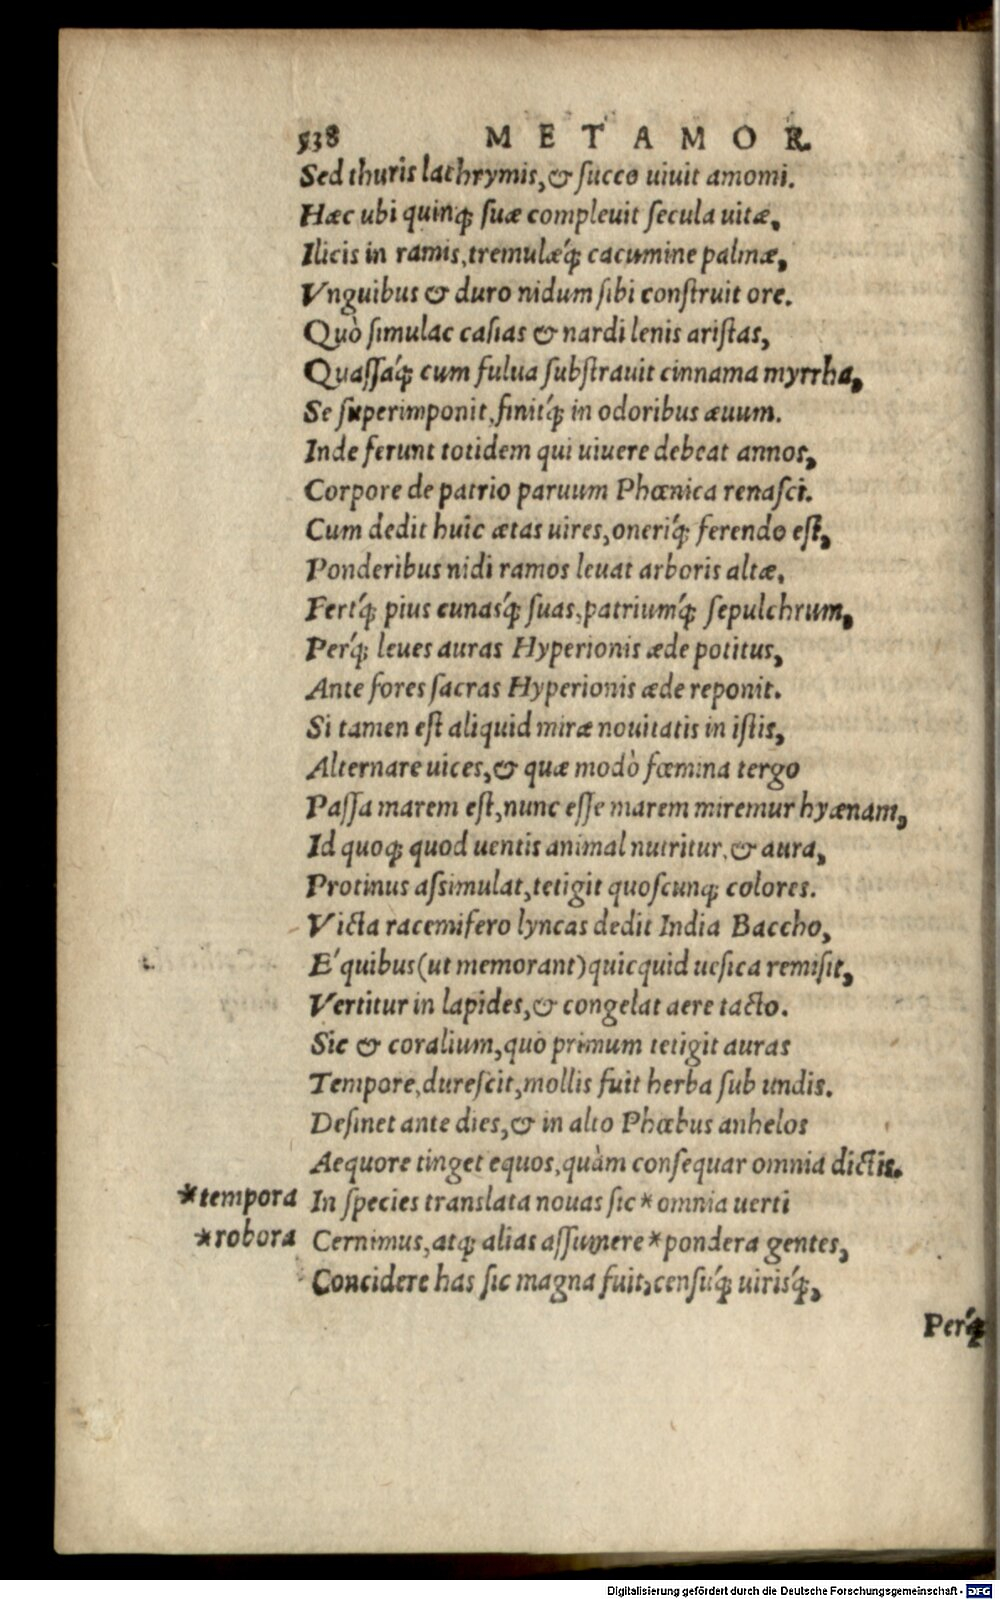 538 METAMOR.
Sed thuris lachrymis, & succo uiuit amomi.
Hæc ubi quinq; suæ compleuit secula uitæ,
Ilicis in ramis, tremulæq́; cacumine palmæ,
Vnguibus & duro nidum sibi construit ore.
Quò simulac casias & nardi lenis aristas,
Quassaq́; cum fulua substrauit cinnama myrrha,
Se superimponit, finitq́; in odoribus æuum.
Inde ferunt totidem qui uiuere debeat annos,
Corpore de patrio paruum Phœnica renasci.
Cum dedit huic ætas uires, oneriq́; ferendo est,
Ponderibus nidi ramos leuat arboris altæ,
Fertq́; pius cunasq́; suas, patriumq́; sepulchrum,
Perq́; leues auras Hyperionis æde potitus,
Ante fores sacras Hyperionis æde reponit.
Si tamen est aliquid miræ nouitatis in istis,
Alternare uices, & quæ modò fœmina tergo
Passa marem est, nunc esse marem miremur hyænam,
Id quoq; quod uentis animal nutritur, & aura,
Protinus assimulat, tetigit quoscunq; colores.
Victa racemifero lyncas dedit India Baccho,
E' quibus (ut memorant) quicquid uesica remisit,
Vertitur in lapides, & congelat aere tacto.
Sic & coralium, quò primum tetigit auras
Tempore, durescit, mollis fuit herba sub undis.
Desinet ante dies, & in alto Phœbus anhelos
Aequore tinget equos, quàm consequar omnia dictis.
*tempora In species translata nouas sic * omnia uerti
*robora Cernimus, atq; alias assumere * pondera gentes,
Concidere has sic magna fuit, censuq́; uirisq́;,
Perq́;
Digitalisierung gefördert durch die Deutsche Forschungsgemeinschaft - DFG